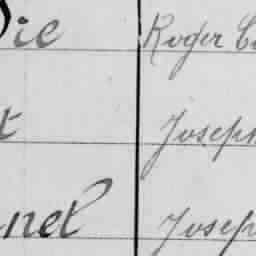 Die Roger
t Joseph
nel Joseph